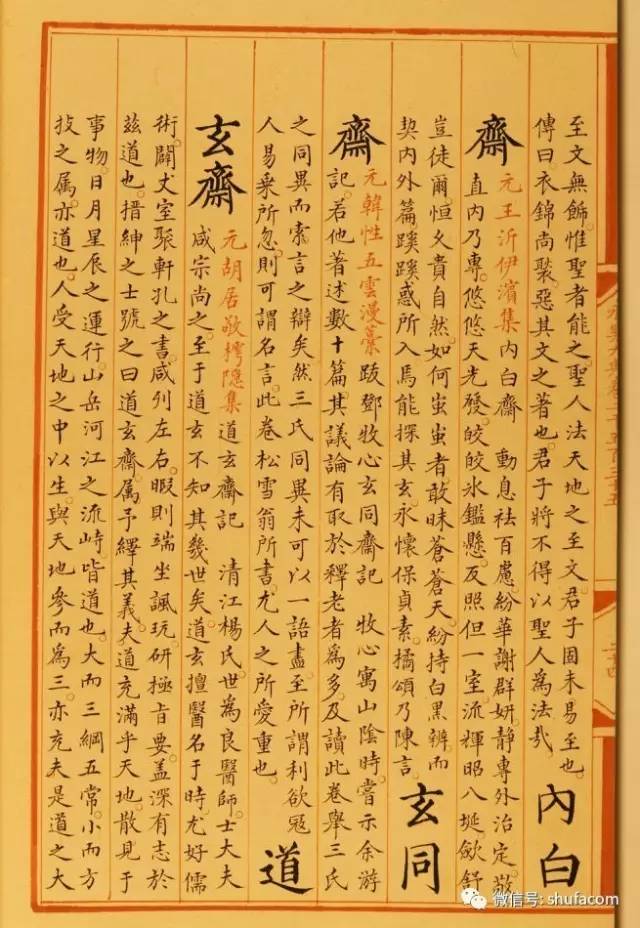 永樂大典卷二千五百三十五
至文無飾。惟聖者能之。聖人法天地之至文。君子固未易至也。
傳曰。衣錦尚褧。惡其文之著也。君子將不得以聖人為法哉
內白
齋
元王沂伊濱集 內白齋 動息袪百慮。紛華謝群妍。靜專外治定。敬
直內乃專。悠悠天光發。皎皎氷鑑懸。反照但一室。流輝昭八埏。歛舒
豈徒爾。恒久貴自然。如何蚩蚩者。敢昧蒼蒼天。紛持白黑辨。而
契內外篇。蹊蹊惑所入。焉能探其玄。永懷保貞素。橘頌乃陳言。
玄同
齋
元韓性五雲漫藁 跋鄧牧心玄同齋記 牧心寓山陰時。嘗示余游
記。若他著述數十篇。其議論有取於釋老者為多。及讀此卷。舉三氏
之同異而索言之。辯矣。然三氏同異未可以一語盡。至所謂利欲冦
人。易乗所忽。則可謂名言。此卷松雪翁所書。尤人之所愛重也。
道
玄齋
元胡居敬樗隠集 道玄齋記 清江楊氏。世為良醫師。士大夫
咸宗尚之。至于道玄。不知其幾世矣。道玄擅醫名于時。尤好儒
術。闢丈室。聚軒孔之書。咸列左右。暇則端坐諷玩。研極旨要。盖深有志於
兹道也。搢紳之士號之曰道玄齋。属予繹其義。夫道充滿乎天地。散見于
事物。日月星辰之運行。山岳河江之流峙。皆道也。大而三綱五常。小而方
技之属。亦道也。人受天地之中以生。與天地參而為三。亦充夫是道之大
微信号: shufacom